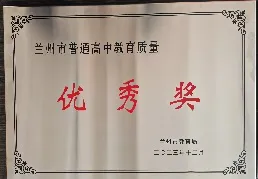 兰州市普通高中教育质量
优秀奖
兰州市教育局
二〇二三年十二月